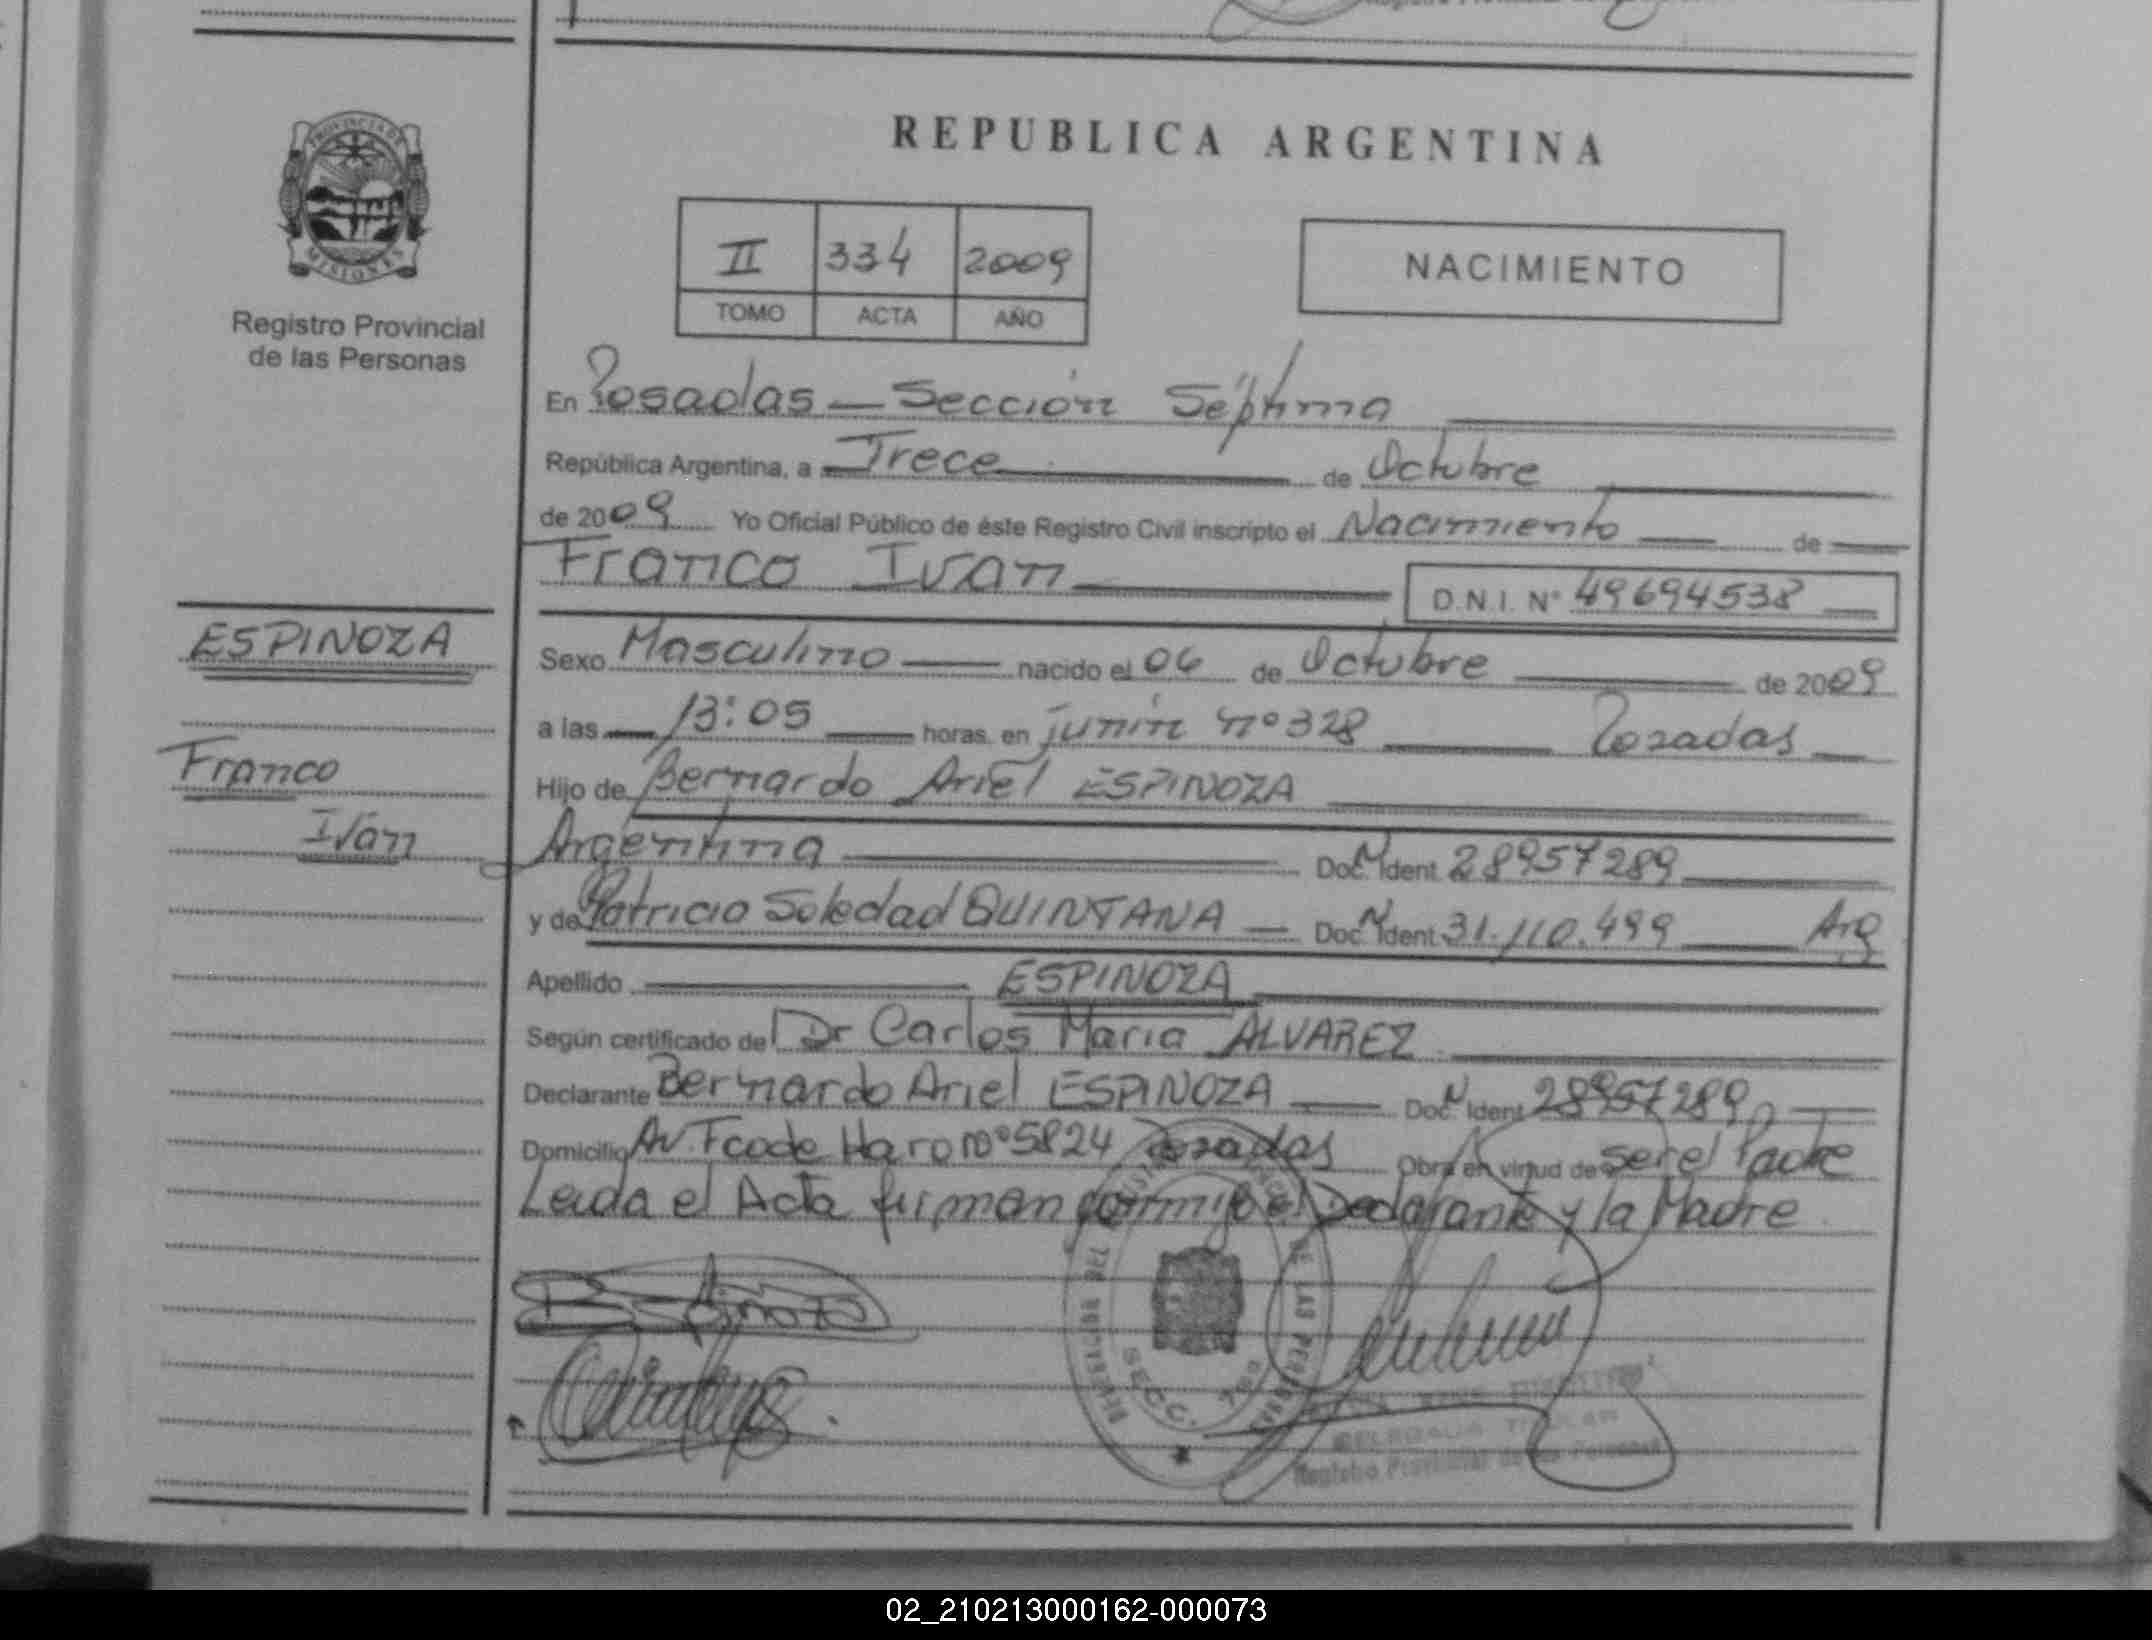 REPUBLICA ARGENTINA
PROVINCIA DE
MISIONES
Registro Provincial
de las Personas
II 334 2009
TOMO ACTA AÑO
NACIMIENTO
En Posadas — Sección Séptima
República Argentina, a Trece de Octubre
de 2009 Yo Oficial Público de éste Registro Civil inscripto el Nacimiento de
Franco Ivan
D.N.I. Nº 49694538
ESPINOZA
Franco
Ivan
Sexo Masculino nacido el 06 de Octubre de 2009
a las 13:05 horas, en junín nº 328 Posadas
Hijo de Bernardo Ariel ESPINOZA
Argentina Doc. N Ident. 28957289
y de Patricia Soledad QUINTANA Doc. N Ident. 31.110.499 Arg
Apellido ESPINOZA
Según certificado de Dr Carlos Maria ALVAREZ
Declarante Bernardo Ariel ESPINOZA Doc. N Ident. 28957289
Domicilio Av. Fcode Haro nº 5824 Posadas Obra en virtud de ser el Padre
Leida el Acta firman conmigo el Declarante y la Madre
DE LAS PERSONAS
SECC. 7ma
DELEGADA TITULAR
Registro Provincial de las Personas
02_210213000162-000073